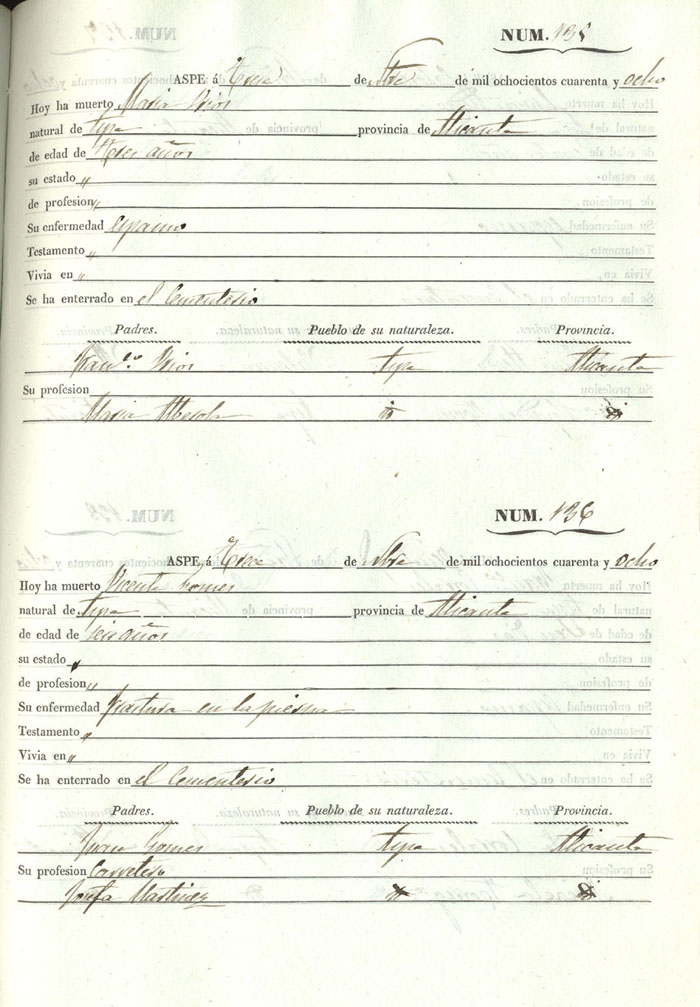 NUM. 135
ASPE á Trece de 9bre de mil ochocientos cuarenta y ocho
Hoy ha muerto Maria
natural de Aspe provincia de Alicante
de edad de tres años
su estado "
de profesion "
Su enfermedad espasmo
Testamento "
Vivia en "
Se ha enterrado en el Cementerio
Padres. Pueblo de su naturaleza. Provincia.
Franco. Aspe Alicante
Su profesion
Maria id id
NUM. 136
ASPE, á Trece de 9bre de mil ochocientos cuarenta y ocho
Hoy ha muerto Vicente Gomes
natural de Aspe provincia de Alicante
de edad de seis años
su estado "
de profesion "
Su enfermedad fractura en la pierna
Testamento "
Vivia en "
Se ha enterrado en el Cementerio
Padres. Pueblo de su naturaleza. Provincia.
Juan Gomes Aspe Alicante
Su profesion Carretero
Josefa Martinez id id